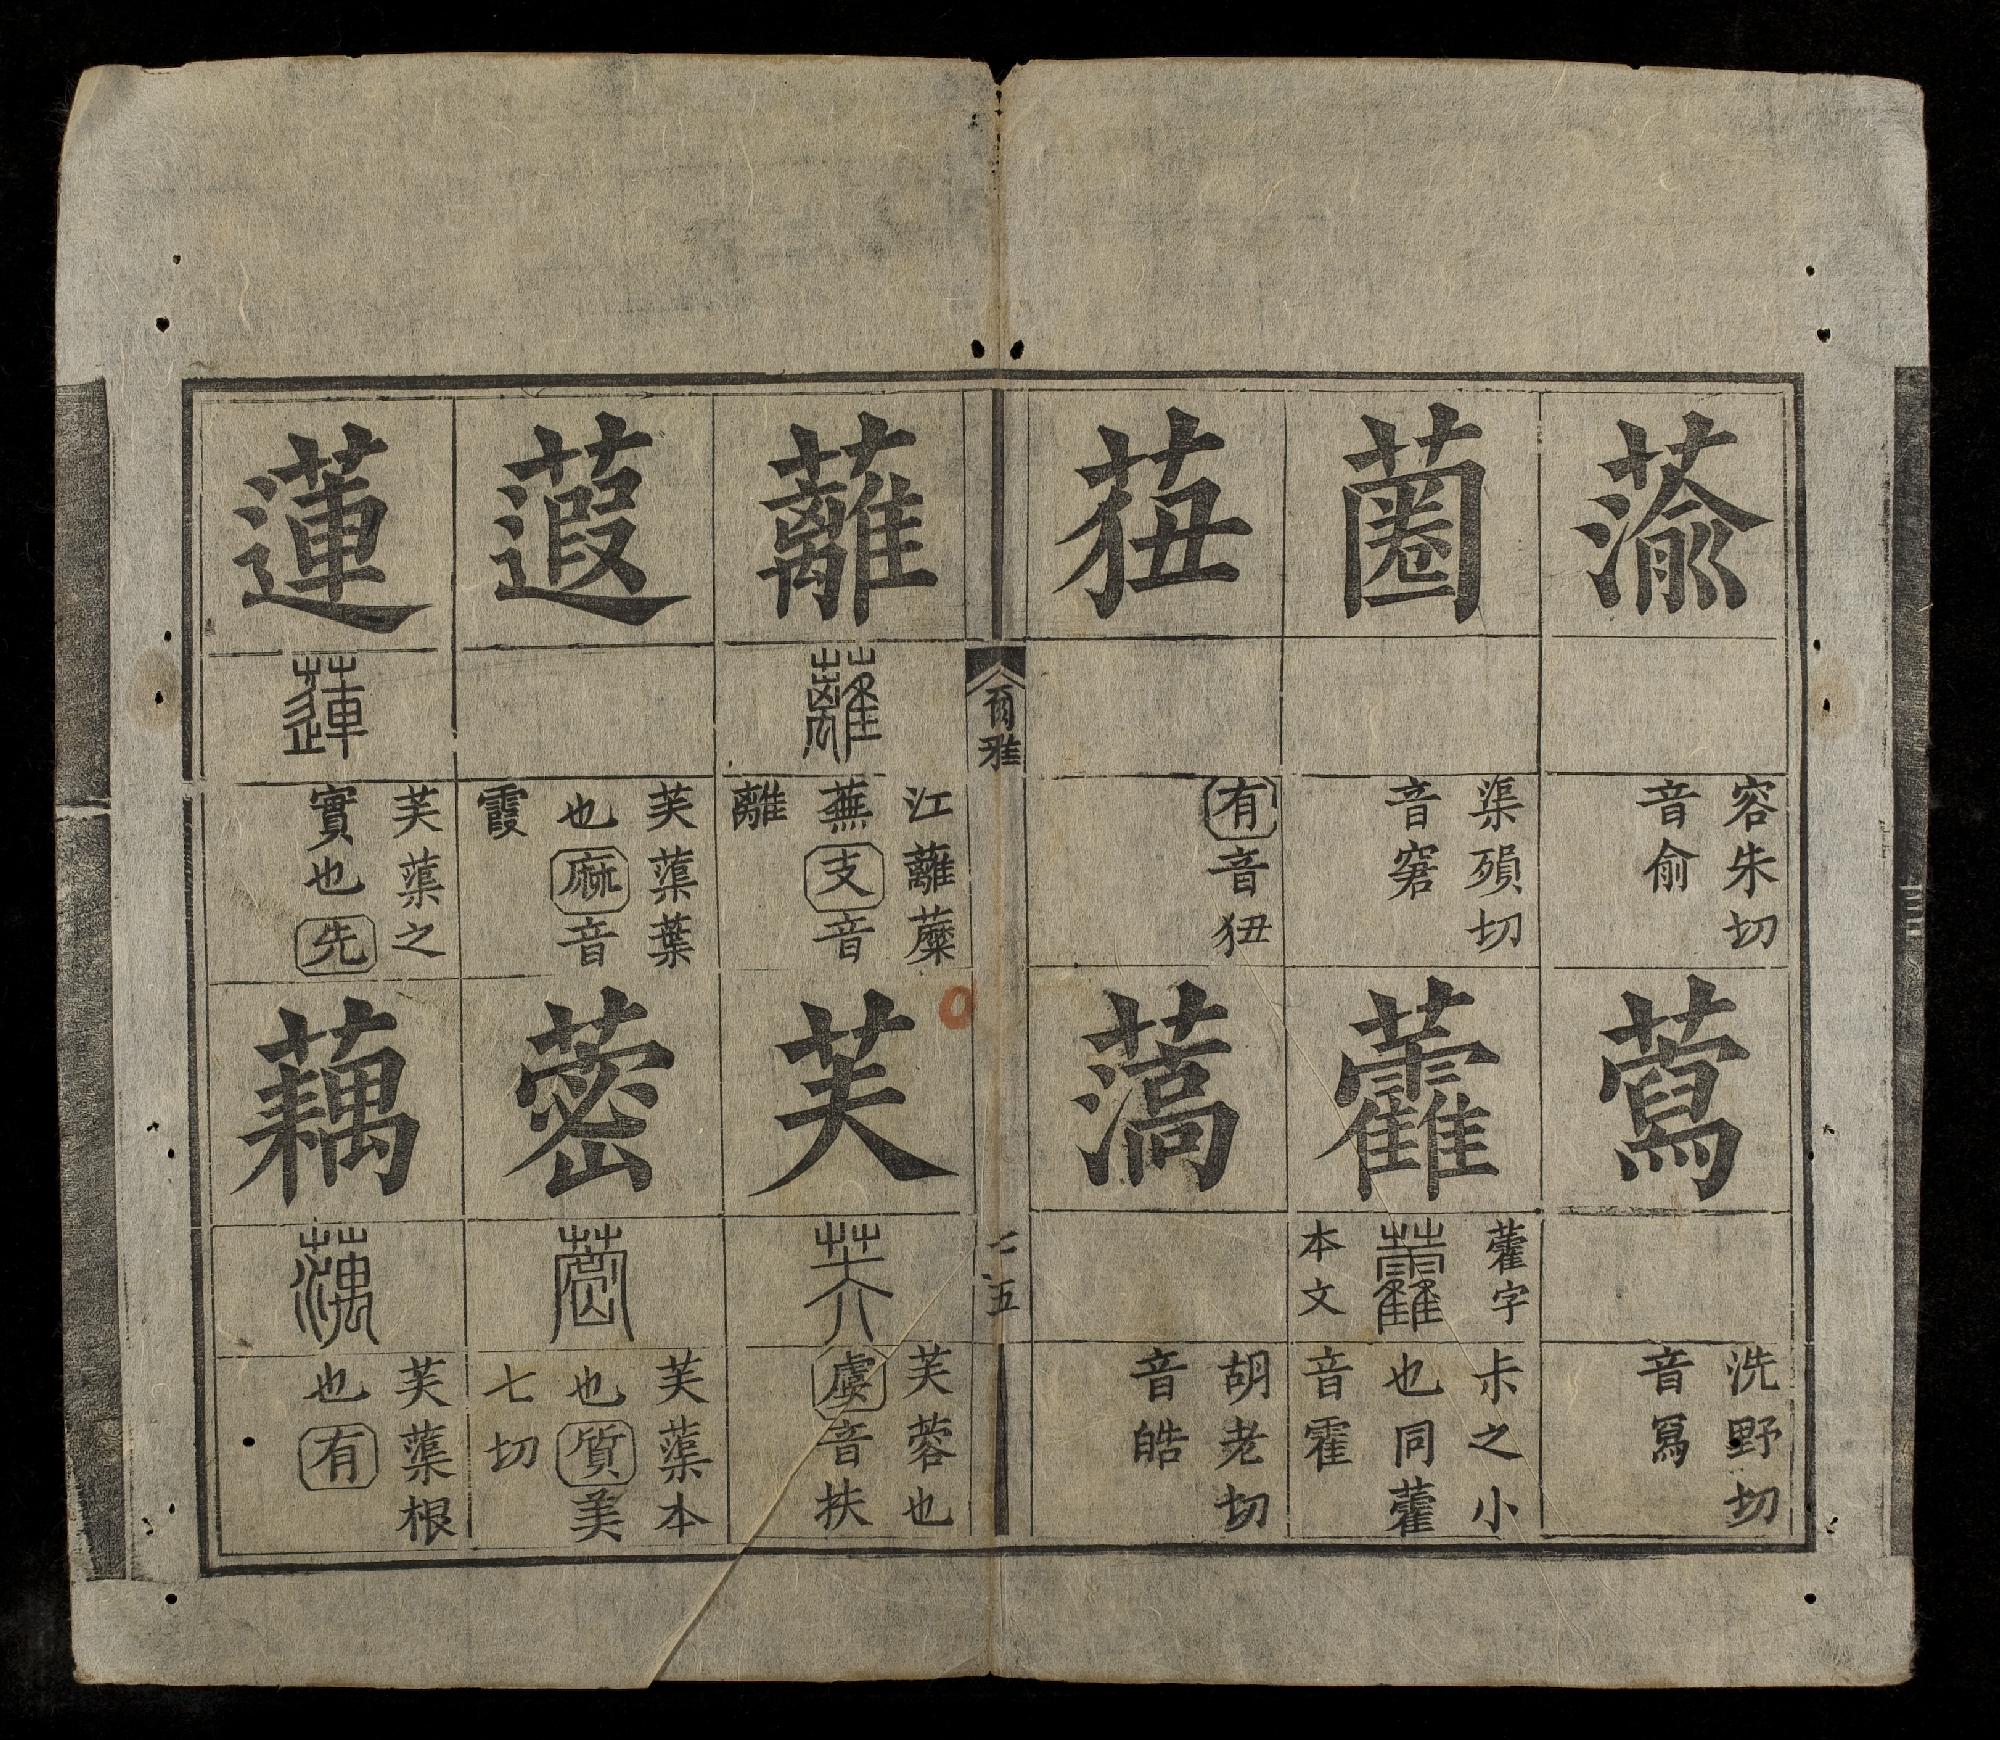 蕍
容朱切
音俞
藛
洗野切
音冩
蔨
渠殞切
音窘
𧆑
藿字
本文
尗之小
也同藿
音霍
莥
有音狃
薃
胡老切
音皓
爾雅
五
蘺
蘺
江蘺蘪
蕪支音
離
芙
芙
芙蓉也
虞音扶
蕸
芙蕖葉
也麻音
霞
蔤
蔤
芙蕖本
也質美
七切
蓮
蓮
芙蕖之
實也先
藕
芙蕖根
也有